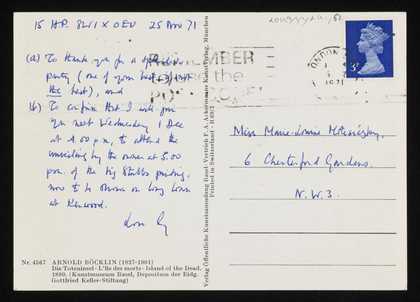 15 H.P. SW1X 0EU 25 Nov 71
(a) To thank you for a splendid
party (one of your best
the best), and
(b) To confirm that I will join
you next Wednesday 1 Dec
at 4.00 p.m. to attend the
unveiling by the owner at 5.00
p.m. of the big Stubbs painting,
now to be shown on long loan
at Kenwood.
Nr. 4567 ARNOLD BÖCKLIN (1827-1901)
Die Toteninsel · L'île des morts · Island of the Dead.
1880. (Kunstmuseum Basel, Depositum der Eidg.
Gottfried Keller-Stiftung)
Verlag Öffentliche Kunstsammlung Basel Vertrieb F. A. Ackermanns Kunstverlag, München
Printed in Switzerland
REMEMBER
the
LONDON
1971
3P
Miss Marie-Louise Motesiczky,
6 Chesterford Gardens.
N.W.3.